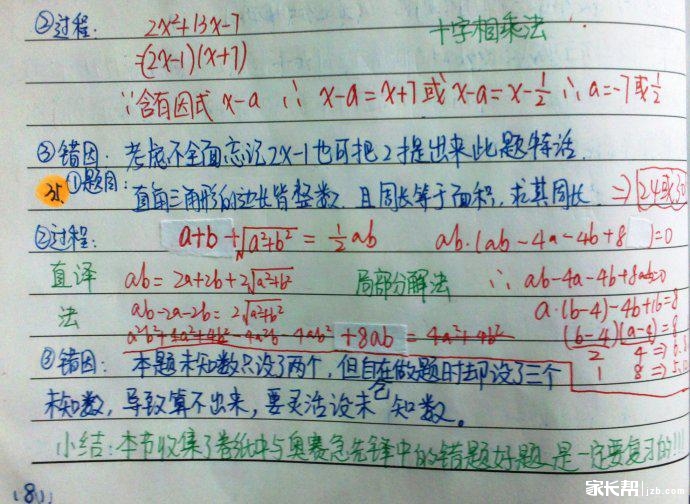 ②过程: 2x²+13x-7 十字相乘法
=(2x-1)(x+7)
∵含有因式 x-a ∴ x-a=x+7或x-a=x-1/2 ∴a=-7或1/2
③错因: 考虑不全面忘记2x-1也可把2才提出来此题特活.
35. ①题目: 直角三角形的边长皆整数,且周长等于面积,求其周长. ⇒24或30
②过程: a+b+√a²+b² = 1/2 ab ab·(ab-4a-4b+8)=0
直译 ab=2a+2b+2√a²+b² 局部分解法 ∴ab-4a-4b+8=0
法 ab-2a-2b=2√a²+b² a·(b-4)-4b+16=8
a²b²+4a²+4b²-4a²b-4ab²+8ab=4a²+4b² (b-4)(a-4)=8
2 4 ⇒ 6.8
1 8 ⇒ 5.12
③错因: 本题未知数只设了两个,但自在做题时却设了三个
未知数,导致算不出来,要灵活设未知数。
小结:本节收集了卷纸中与奥赛急先锋中的错题好题 是一定要复习的!!!
180
家长帮 jzb.com